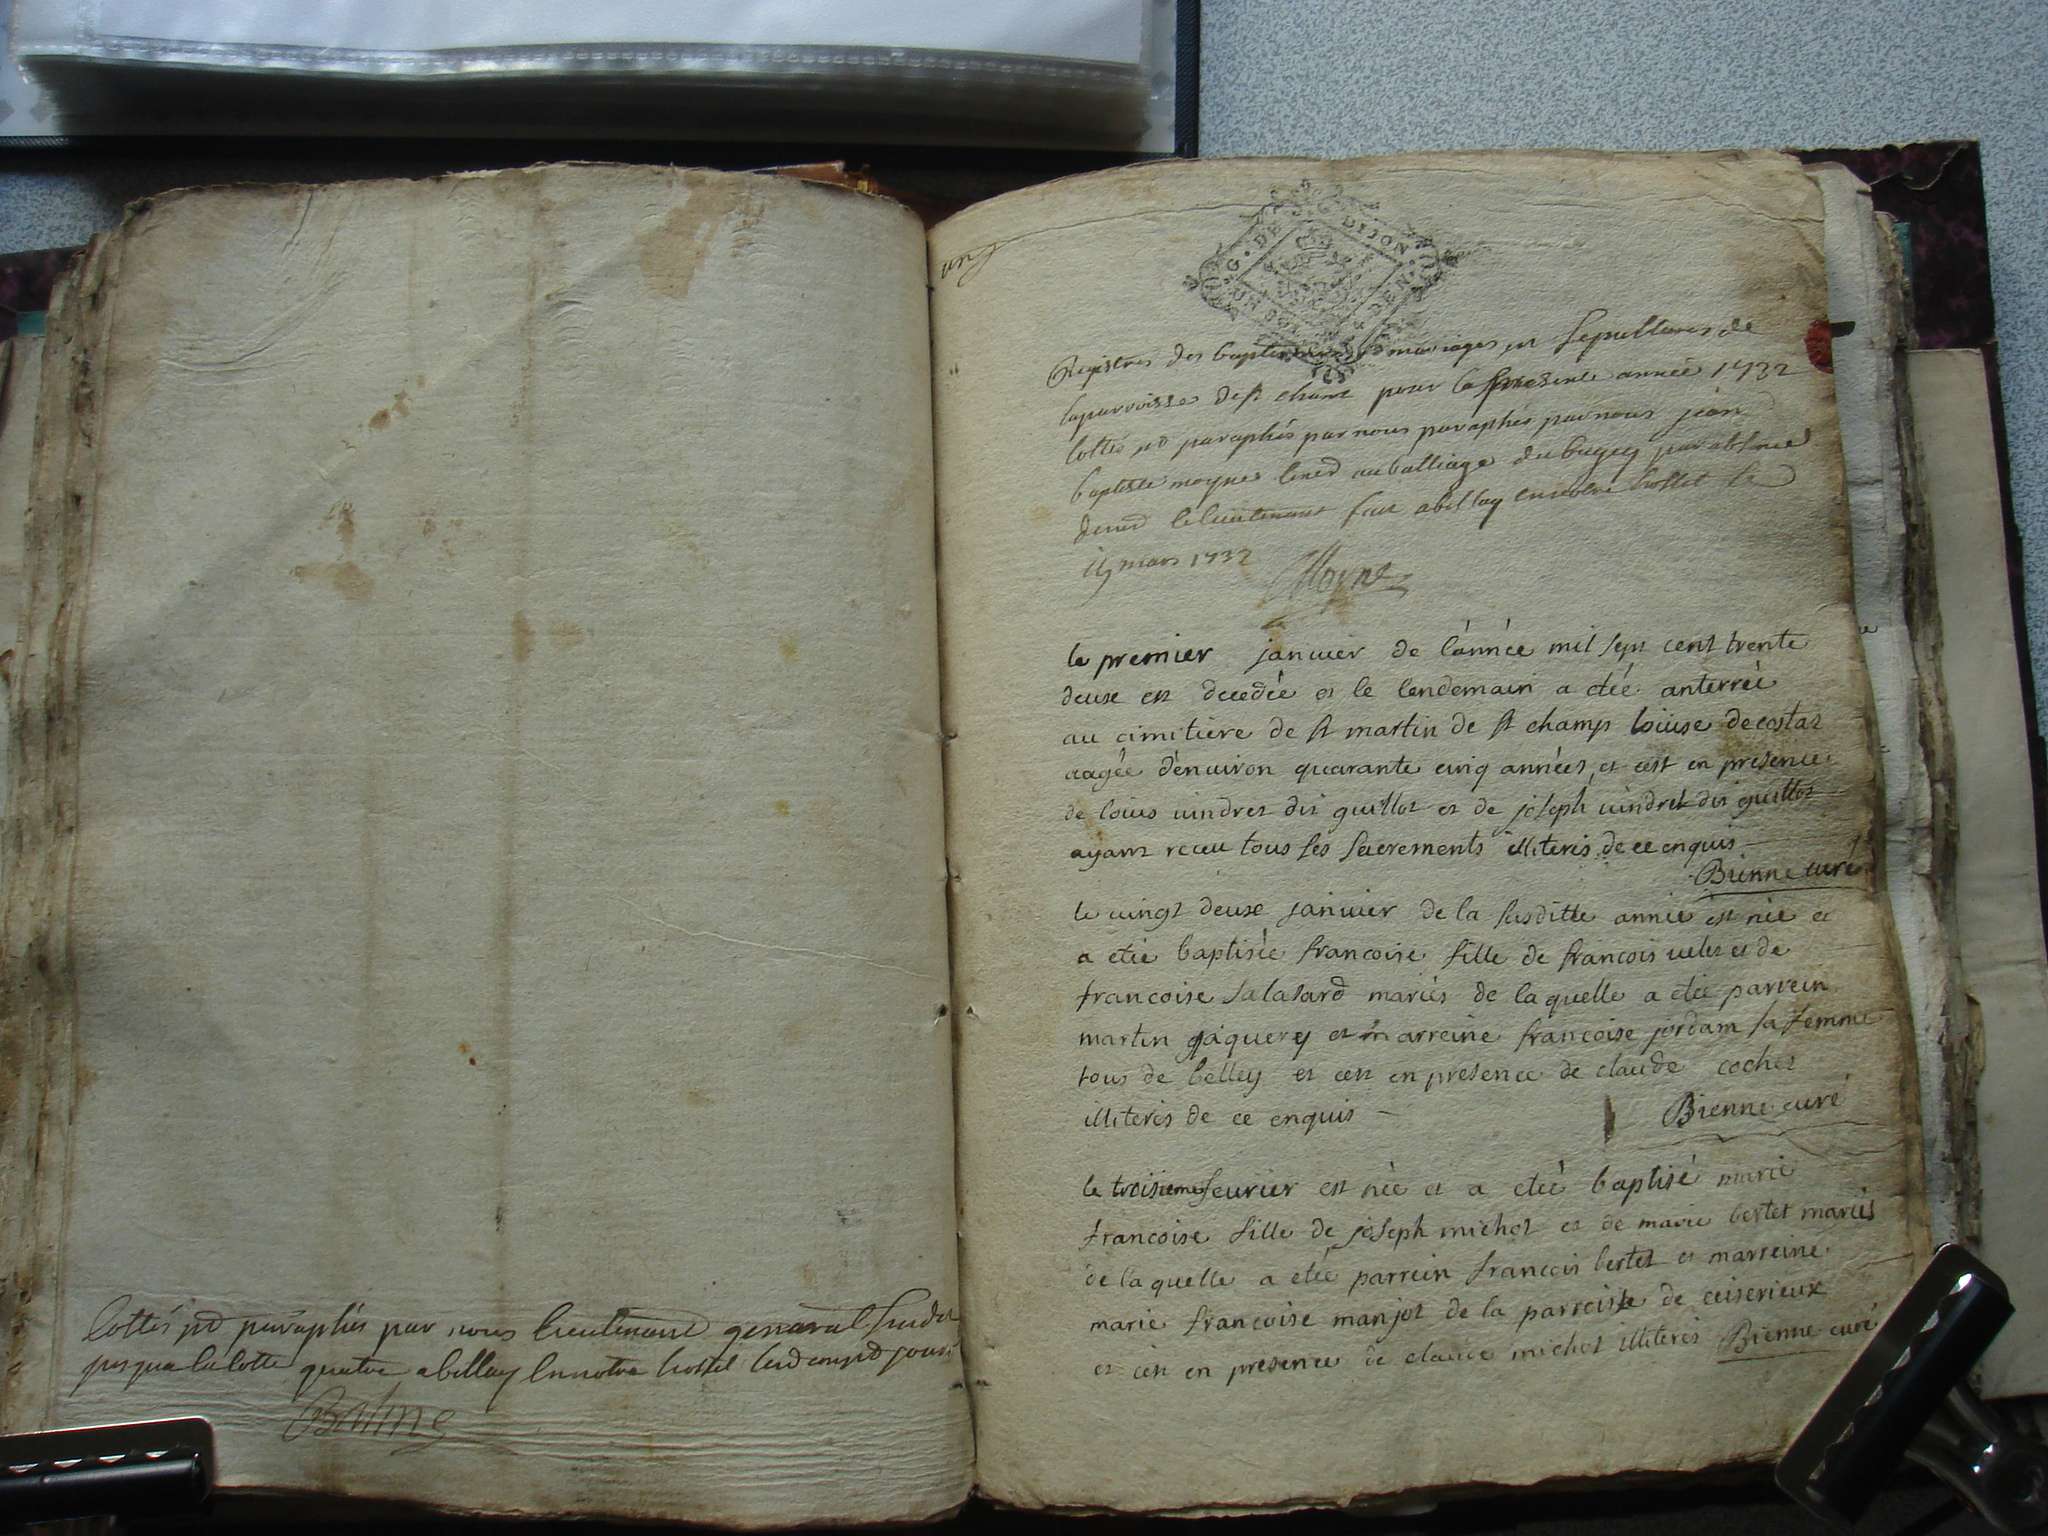 Cottés et paraphés par nous lieutenant general
jusqua la cotte quatre a bellay en notre hostel jour
Balme
un
G. DE DIJON
Registres des baptemes mariages et sepultures de
la parroisse de st champ pour la presente année 1732
cottés et paraphés par nous paraphés par nous jean
baptiste moyne au balliage du bugey par absence
le lieutenant fait a bellay en notre hostel le
mars 1732
Moyne
le premier janvier de l'année mil sept cent trente
deuse est decedée et le lendemain a etée anterrée
au cimitiere de st martin de st champ loüise decostaz
aagée d'enuiron quarante cinq années et cest en presence
de loüis uindret dit guillot et de joseph uindret dit guillot
ayant receu tous ses sacrements illiterés de ce enquis
Bienne curé
le uingt deuse januier de la susditte année est née et
a etée baptisée francoise fille de francois uelet et de
francoise salasard mariés de laquelle a etée parrein
martin jaquery et marreine francoise jordam sa femme
tous de belley et cest en presence de claude cochet
illiterés de ce enquis
Bienne curé
le troisieme feurier est née et a etée baptisé marie
francoise fille de joseph michot et de marie bertet mariés
de laquelle a etée parrein francois bertet et marreine
marie francoise manjot de la parroisse de ceiserieux
et cest en presence de claude michot illiterés Bienne curé